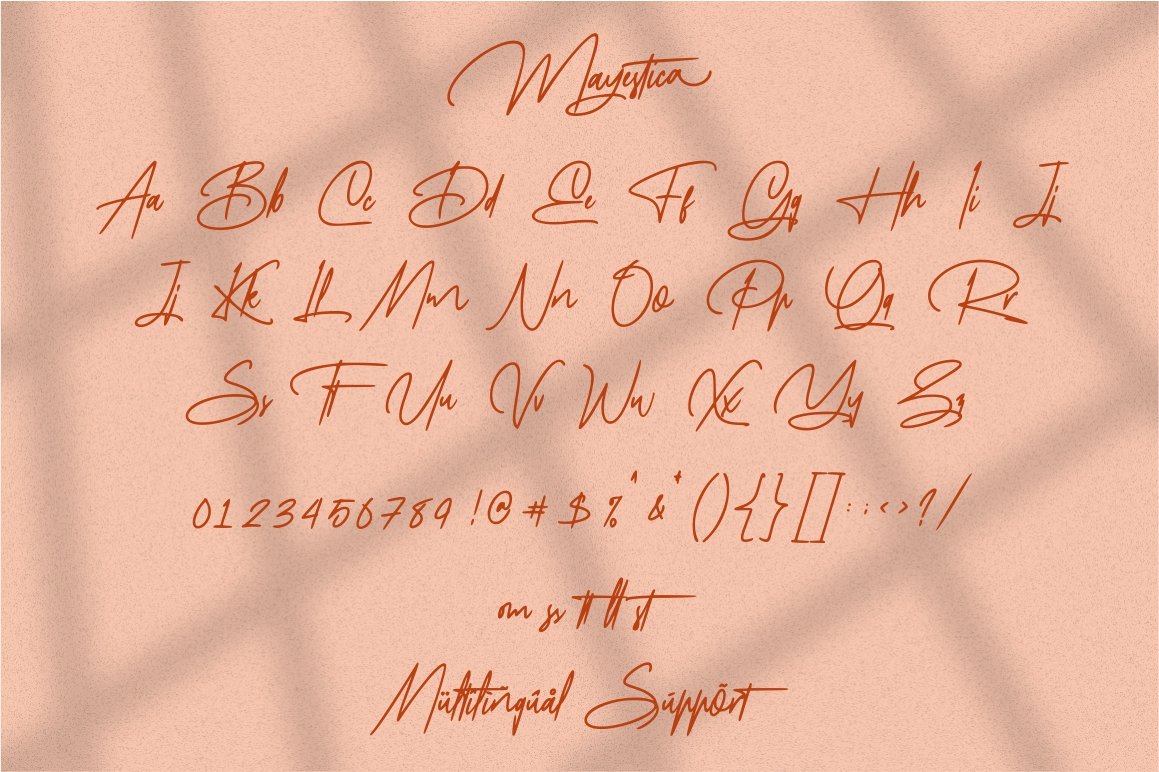 Mayestica
Aa Bb Cc Dd Ee Ff Gg Hh Ii Jj
Jj Kk Ll Mm Nn Oo Pp Qq Rr
Ss Tt Uu Vv Ww Xx Yy Zz
0123456789 !@ # $ % ^ & * () {} [] : ; < > ? /
om ss tt lt st
Mültilïñgúål Súppõrt